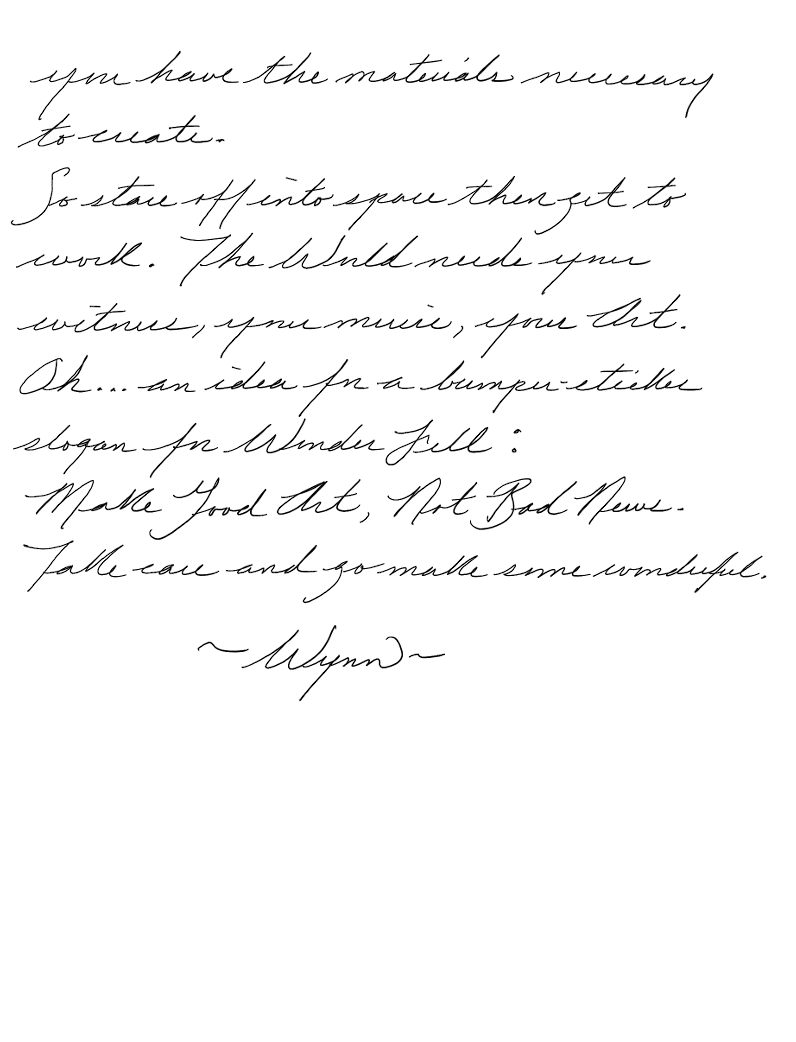 you have the materials necessary
to create.
So stare off into space then get to
work. The World needs your
witness, your music, your Art.
Oh... an idea for a bumper-sticker
slogan for Wonder Fell :
Make Good Art, Not Bad News.
Take care and go make some wonderful.
~Wynn~